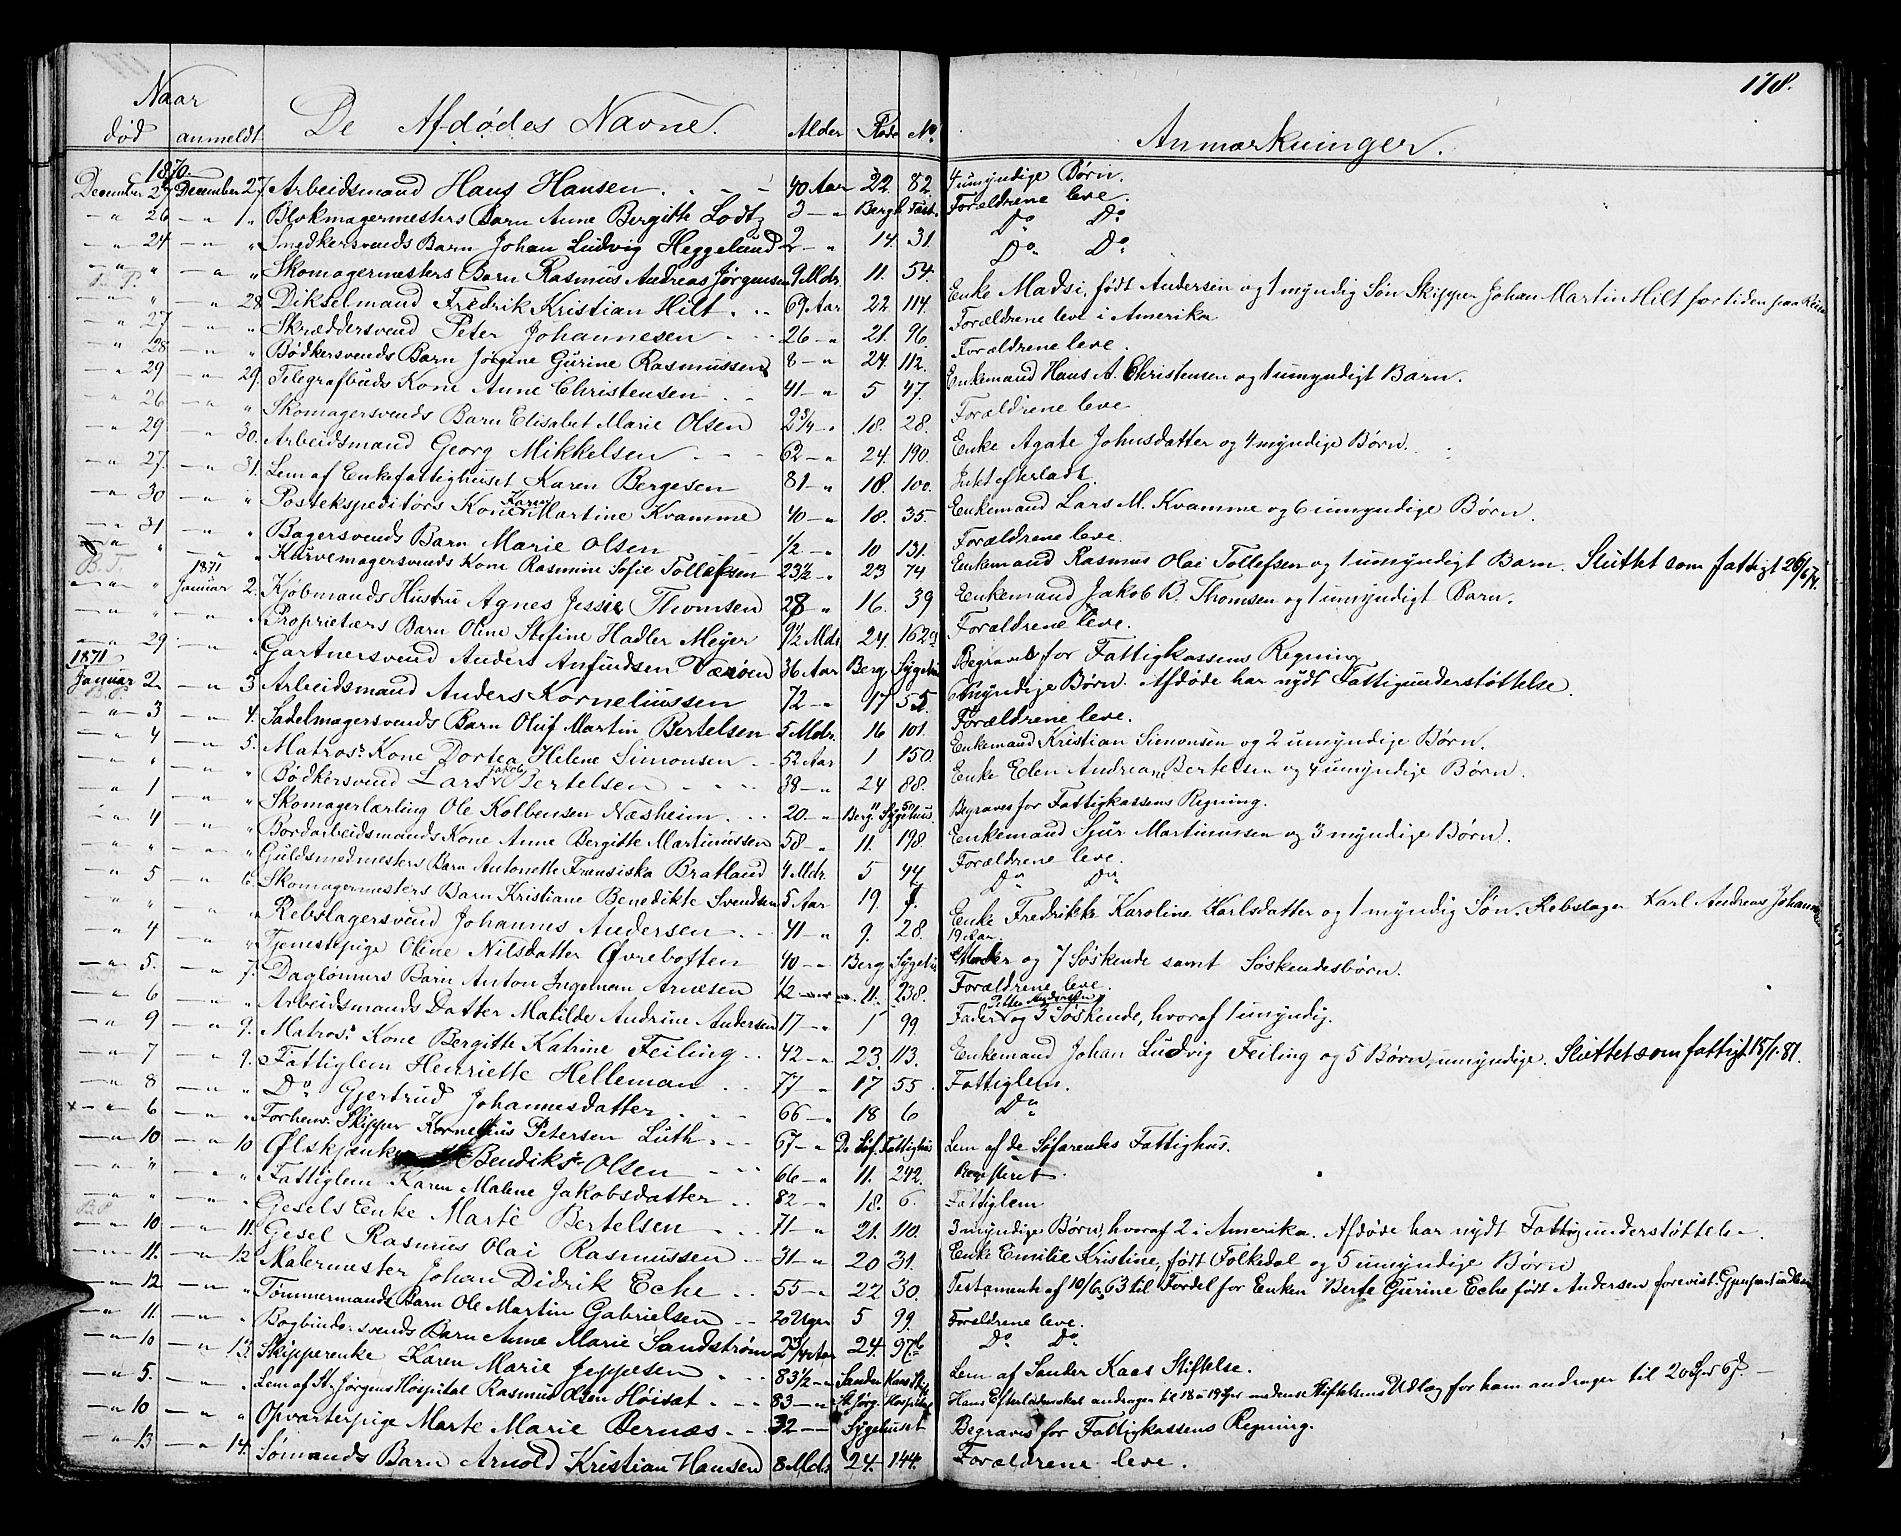 178.
Naar
død anmeldt De Afdødes Navne. Alder Rode No. Anmærkninger.
1870
December 27 December 27. Arbeidsmand Hans Hansen 40 Aar 22 82 4 umyndige Børn.
" 26 " " Blokmagermesters Barn Anne Bergitte Lodtz 3 " Bergh Forældrene leve.
" 24 " " Snedkersvends Barn Johan Ludvig Heggelund 2 " 14. 31. Do Do
" " " " Skomagermesters Barn Rasmus Andreas Jørgensen 9 Mdr. 11. 54. Do Do
" " " 28. Dikselmand Fredrik Kristian Hilt 69 Aar 22 114. Enke Madsi, født Andersen og 1 myndig Søn Skipper Johan Martin Hilt for tiden paa Reise
" 27 " " Skræddersvend Peter Johannesen 26 " 21. 96. Forældrene leve i Amerika
" 28 " " Bødkersvends Barn Jørgine Gurine Rasmussen 8 " 24. 112. Forældrene leve.
" 29 " 29. Telegrafbuds Kone Anne Christensen 41 " 5 47. Enkemand Hans A. Christensen og 1 umyndigt Barn.
" 26 " " Skomagersvends Barn Elisabet Marie Olsen 2 3/4 " 18. 28. Forældrene leve
" 29 " 30. Arbeidsmand Georg Mikkelsen 62 " 24. 190. Enke Agate Johnsdatter og 4 myndige Børn.
" 27 " 31. Lem af Enkefattighuset Karen Bergesen 81 " 18. 100. Intet efterladt.
" 30 " " Postekspeditørs Kone Karen Martine Kvamme 40 " 18. 35. Enkemand Lars M. Kvamme og 6 umyndige Børn.
" 31 " " Bagersvends Barn Marie Olsen 1/2 " 10 131. Forældrene leve.
" " " " Kurvemagersvends Kone Rasmine Sofie Tollefsen 23 1/2 " 23 74 Enkemand Rasmus Olai Tollefsen og 1 umyndigt Barn. Sluttet som fattigt 26/6 71.
1871
" " Januar 2. Kjøbmands Hustru Agnes Jessie Thomsen 28 " 16. 39 Enkemand Jakob B. Thomsen og 1 umyndigt Barn.
" " " " Proprietærs Barn Oline Stefine Hadler Meyer 9 1/2 Mdr. 24. 162 Forældrene leve.
" 29. " " Gartnersvend Anders Anfindsen 36 Aar Berg. Sygehus Begraves for Fattigkassens Regning
1871
Januar 2. " 3 Arbeidsmand Anders Korneliussen 72 " 17 55. 6 myndige Børn. Afdøde har nydt Fattigunderstøttelse.
" 3 " 4. Sadelmagersvends Barn Oluf Martin Bertelsen 5 Mdr. 16 101. Forældrene leve.
" 4 " 5. Matros. Kone Dortea Helene Simonsen 52 Aar 1 150. Enkemand Kristian Simonsen og 2 umyndige Børn.
" " " " Bødkersvend Lars Jakob Bertelsen 38 " 24 88. Enke Elen Andrea Bertelsen og 4 umyndige Børn.
" 1 " " Skomagerlærling Ole Kolbensen Næsheim 20 " Berg. Sygehus. Begraves for Fattigkassens Regning.
" 4 " " Bordarbeidsmands Kone Anne Bergitte Martinussen 58 " 11. 198. Enkemand Sjur Martinussen og 3 myndige Børn.
" " " " Guldsmedmesters Barn Antonette Fransiska Bratland 4 Mdr. 5 Forældrene leve.
" 5 " 6. Skomagermesters Barn Kristiane Benedikte Svendsen 5 Aar 19. Do Do
" " " " Rebslagersvend Johannes Andersen 41 " 9. 28. Enke Fredrikke Karoline Karlsdatter og 1 myndig Søn. Rebslager Karl Andreas
19 Aar.
" 4 " " Tjenestepige Oline Nilsdatter Øvrebotten 40 " Berg Sygehus Moder og 7 Søskende samt Søskendesbørn.
" 5. " 7. Daglønners Barn Anton Ingeman Arnesen 1/2 " 11. 238. Forældrene leve.
" 6 " " Arbeidsmands Datter Matilde Andrine Andersen 17 " 1 99 Fader og 3 Søskende, hvoraf 1 umyndig.
" 9 " 9. Matros. Kone Bergitte Katrine Feiling 42 " 23. 113. Enkemand Johan Ludvig Feiling og 5 Børn, umyndige. Sluttet som fattigt 18/1. 81.
" 7 " 9. Fattiglem Henriette Helleman 77 " 17 55 Fattiglem.
" 8 " " Do Gjertrud Johannesdatter 66 " 18 6 Do
" 6 " " Forhenv. Skipper Kornelius Petersen Lüth 67 " De Søf. Fattighus Lem af de Søfarendes Fattighus.
" 10 " 10 Ølskjænker Bendiks Olsen 66 " 11. 242.
" " " " Fattiglem Karen Malene Jakobsdatter 82 " 18. 6. Fattiglem
" " " " Gesels Enke Marte Bertelsen 71 " 21. 110. 3 myndige Børn, hvoraf 2 i Amerika. Afdøde har nydt Fattigunderstøttelse.
" 10 " 11. Gesel Rasmus Olai Rasmussen 31 " 20 31. Enke Emilie Kristine, født Folkedal og 5 umyndige Børn
" 11. " 12 Malermester Johan Didrik Eche 55 " 22 30. Testamente af 10/6. 63 til Fordel for Enken Berte Gurine Eche født Andersen forevist.
" 12 " " Tømmermands Barn Ole Martin Gabrielsen 20 Uger 5 99. Forældrene leve.
" 11. " " Bogbindersvends Barn Anne Marie Sandstrøm 2 3/4 Aar 24. 97 Do Do
" 10 " 13. Skipperenke Karen Marie Jeppesen 83 1/2 " Sander Kaas Stif. Lem af Sander Kaas Stiftelse.
" 5. " " Lem af St. Jørgens Hospital Rasmus Olsen Høisæt 83 " St. Jørg. Hospital Hans Efterladenskab andrager til 18 a 19 Spd medens Stiftelsens Udlæg for ham andrager til 20 Spd
" 10 " " Opvarterpige Marte Marie Bernæs 32 " Sygehuset Begraves for Fattigkassens Regning.
" 13 " 14. Sømands Barn Arnold Kristian Hansen 8 Mdr. 24. 144. Forældrene leve.